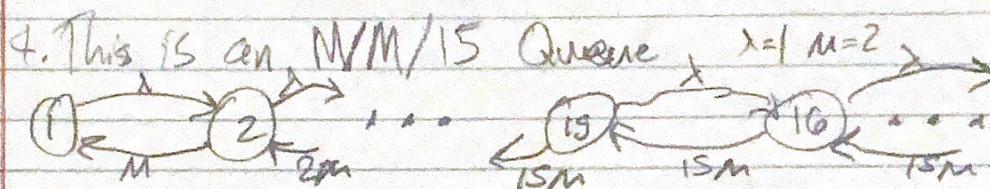 4. This is an M/M/15 Queue λ=1 μ=2
λ λ λ λ
1 2 ... 15 16 ...
μ 2μ 15μ 15μ 15μ